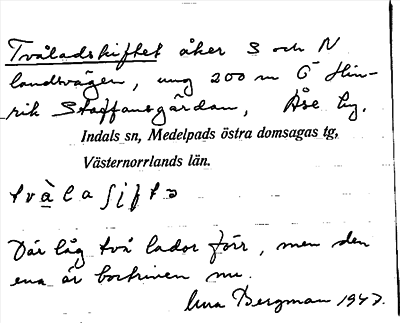 Tvåladskiftet åker S och N
landsvägen, ung 200 m Ö Hin-
rik Staffansgårdan, Åse by.
Indals sn, Medelpads östra domsagas tg,
Västernorrlands län.
Där låg två lador förr, men den
ena är bortriven nu.
Bergman 1947.